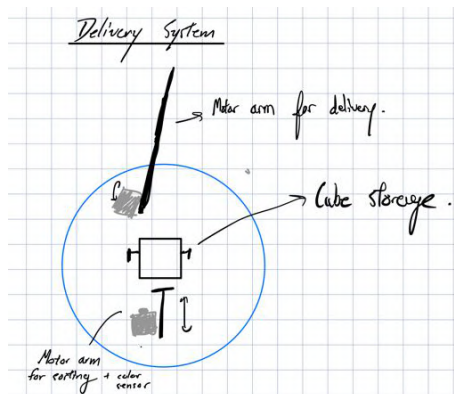 Delivery System
Motor arm for delivery.
Cube storage.
Motor arm
for sorting + color
sensor